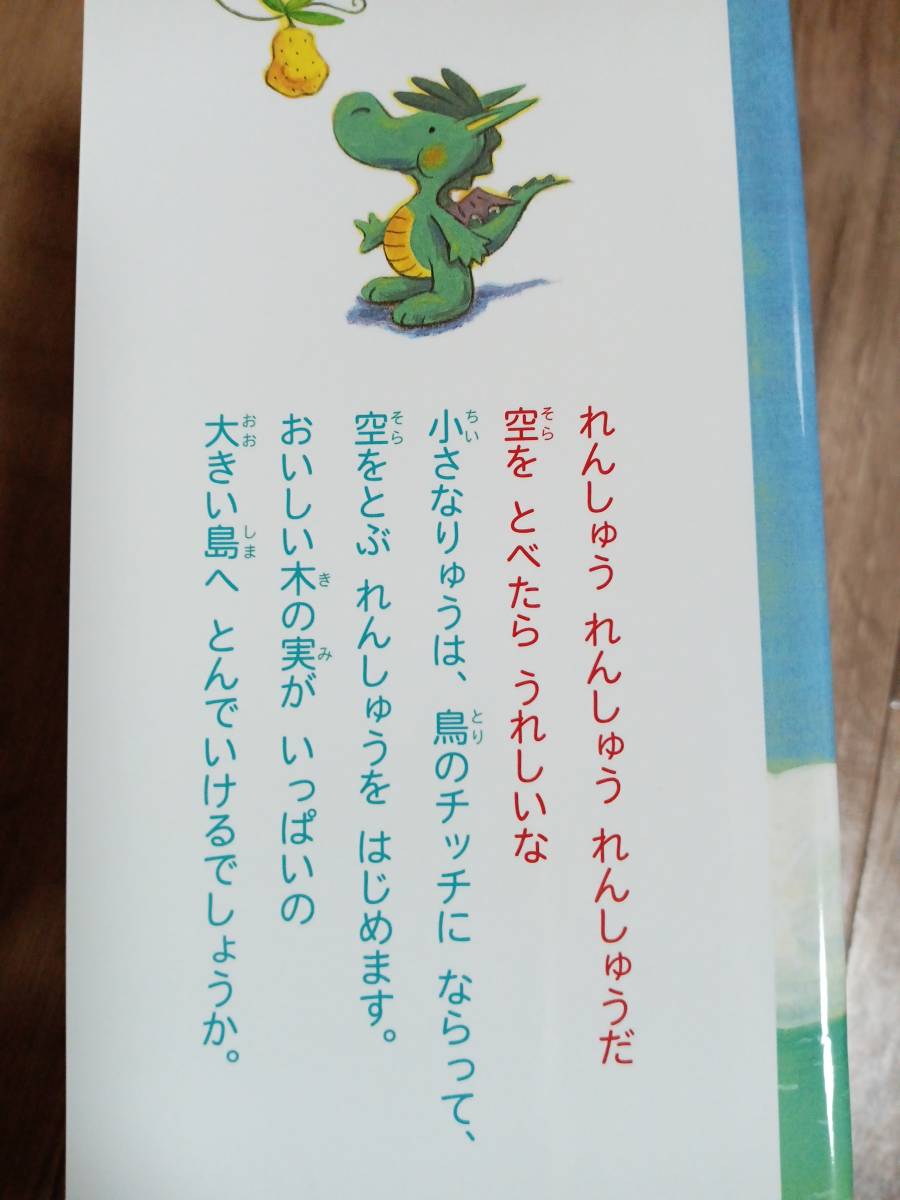 れんしゅう れんしゅう れんしゅうだ
空を とべたら うれしいな
小さなりゅうは、鳥のチッチに ならって、
空をとぶ れんしゅうを はじめます。
おいしい木の実が いっぱいの
大きい島へ とんでいけるでしょうか。